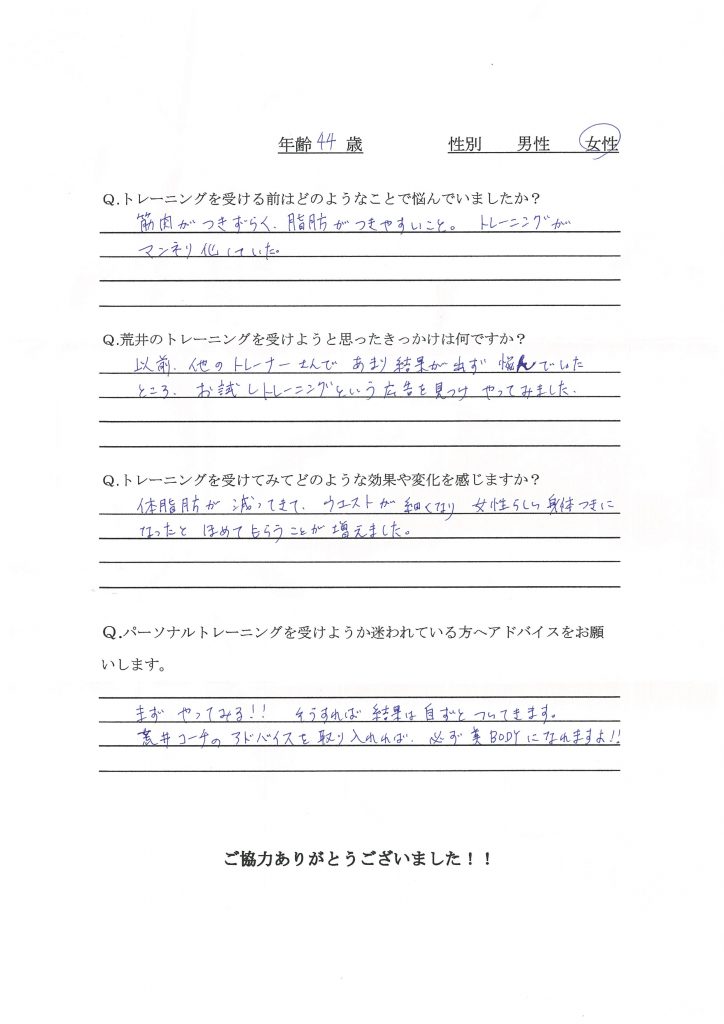 年齢 44 歳 性別 男性 女性
Q.トレーニングを受ける前はどのようなことで悩んでいましたか?
筋肉がつきずらく、脂肪がつきやすいこと。 トレーニングが
マンネリ化していた。
Q.荒井のトレーニングを受けようと思ったきっかけは何ですか?
以前、他のトレーナーさんで あまり結果が出ず 悩んでいた
ところ、お試しトレーニングという広告を見つけ やってみました。
Q.トレーニングを受けてみてどのような効果や変化を感じますか?
体脂肪が減ってきて、ウエストが細くなり 女性らしい身体つきに
なったと ほめてもらうことが増えました。
Q.パーソナルトレーニングを受けようか迷われている方へアドバイスをお願
いします。
まず やってみる!! そうすれば 結果は自ずと ついてきます。
荒井コーチのアドバイスを取り入れれば、必ず美BODYになれますよ!!
ご協力ありがとうございました!!